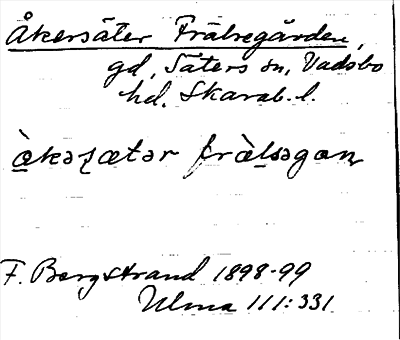 Åkersäter Frälsegården,
gd, Säters sn, Vadsbo
hd, Skarab. l.
àkəʂætər frælsəgɑn
F. Bergstrand 1898-99
Ulma 111:331